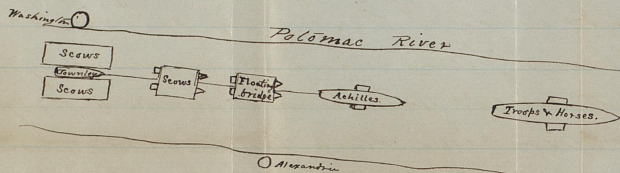 Washington
Potomac River
Scows
Townley
Scows
Scows
Floating
bridge
Achilles.
Troops & Horses.
Alexandria